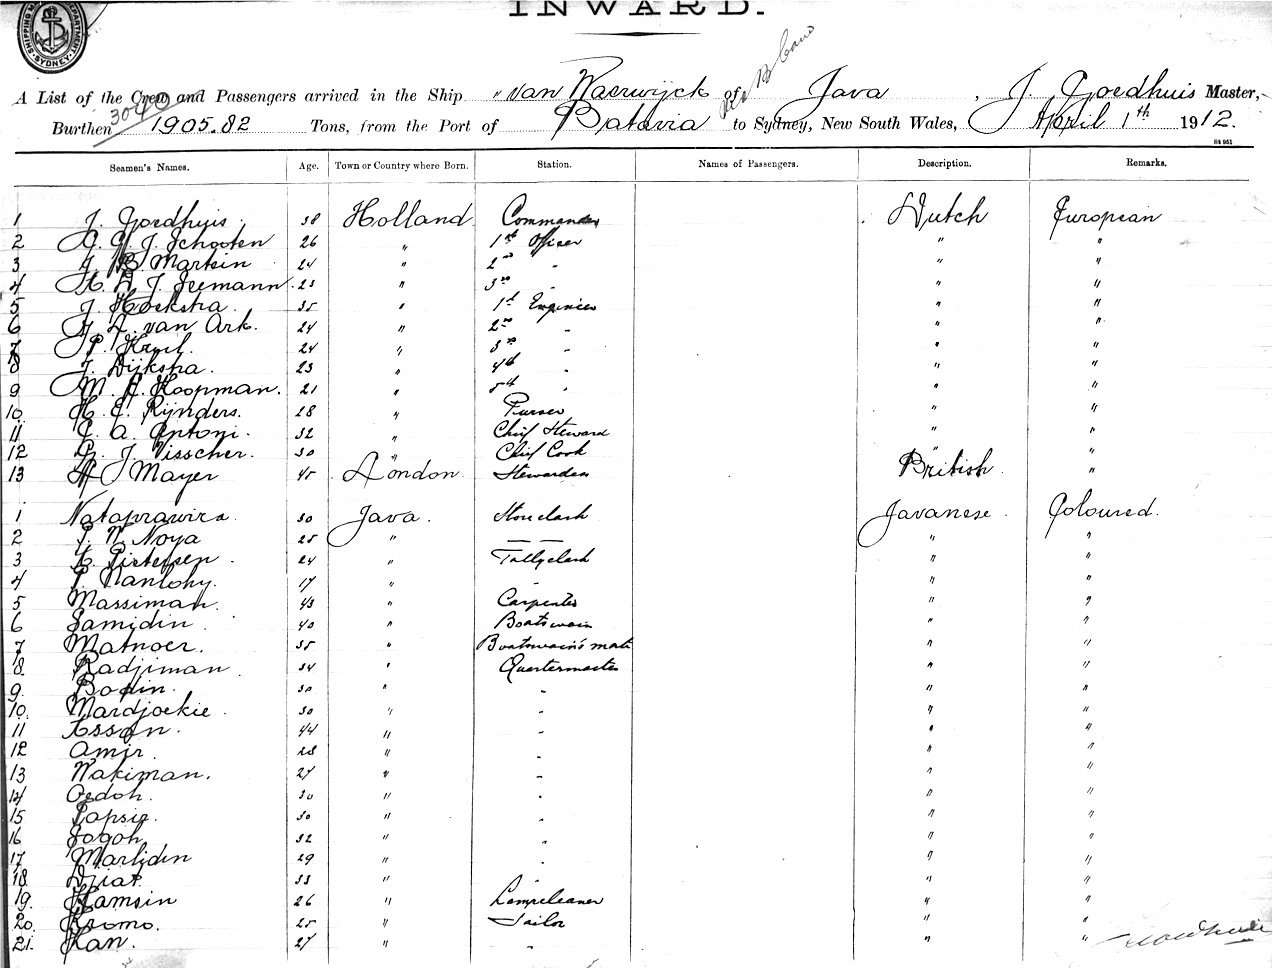 INWARD.
SHIPPING DEPARTMENT SYDNEY
A List of the Crew and Passengers arrived in the Ship "van Waerwijck of Java, J. Goedhuis Master,
3040
Burthen 1905.82 Tons, from the Port of Batavia to Sydney, New South Wales, April 1th 1912.
84 951
Seamen's Names. Age. Town or Country where Born. Station. Names of Passengers. Description. Remarks.
1 J. Goedhuis. 38 Holland Commander Dutch European
2 Schooten 26 " 1st Officer " "
3 Martein 24 " 2nd " " "
4 Seemann 23 " 3rd " " "
5 J. Hoekstra. 35 " 1st Engineer " "
6 van Ark. 24 " 2nd " " "
7 P. Kruil. 24 " 3rd " " "
8 J. Dijkstra. 23 " 4th " " "
9 M. Koopman. 21 " 5th " " "
10. H. E. Rijnders. 28 " Purser " "
11 C. A. Antoni. 32 " Chief Steward " "
12 J. Visscher. 30 " Chief Cook " "
13 Mayer 45 London. Stewardess British "
1 Nataprawira 30 Java. Storeclerk Javanese Coloured.
2 Noya 25 " — — " "
3 Pietersen 24 " Tallyclerk " "
4 P. Nanlohy. 17 " " " "
5 Massiman. 43 " Carpenter " "
6 Samidin 40 " Boatswain " "
7 Matnoer. 35 " Boatswain's mate " "
8. Radjiman 34 " Quartermaster " "
9. Bodin. 30 " " " "
10. Mardjoekie. 30 " " " "
11 44 " " " "
12 Amir. 28 " " " "
13 Wakiman. 27 " " " "
14 Oedoh. 30 " " " "
15 30 " " " "
16 32 " " " "
17 29 " " " "
18 33 " " " "
19. Kamsin 26 " Lampcleaner " "
20. Kromo. 25 " Tailor " "
21. Kan. 27 " " " "